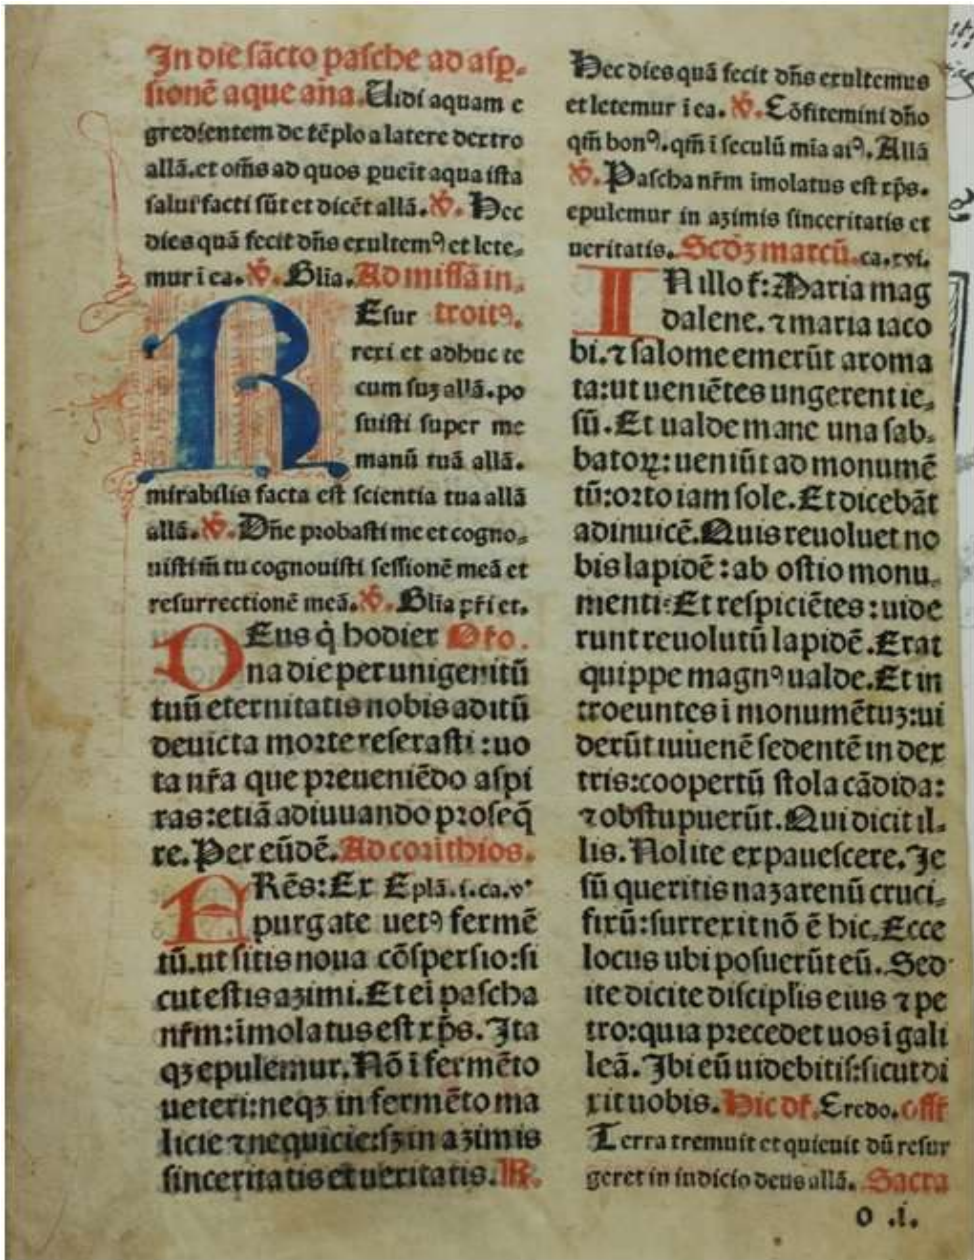 In die sācto pasche ad asp̲-
sionē aque añа. Uidi aquam e
gredientem de tēplo a latere dextro
allā. et om̄s ad quos pueīt aqua ista
salui facti sūt et dicēt allā. ℣. Hec
dies quā fecit dn̄s exultemꝰ et lete-
mur ī ea. ℣. Glia. Ad missā in-
Esur troitꝰ.
R
rexi et adhuc te
cum suꝫ allā. po
suisti super me
manū tuā allā.
mirabilis facta est scientia tua allā
allā. ℣. Dn̄e probasti me et cogno-
uisti m̄ tu cognouisti sessionē meā et
resurrectionē meā. ℣. Glia pr̄i et.
DEus q̇ hodier Oŕo.
na die per unigenitū
tuū eternitatis nobis aditū
deuicta morte reserasti: uo
ta nr̄a que preueniēdo aspi
ras: etiā adiuuando proseq̄
re. Per eūdē. Ad corithios.
FRēs: Ex Eplā. i. ca. v'
purgate uetꝰ fermē
tū. ut sitis noua cōspersio: si
cut estis azimi. Et eī pascha
nr̄m: imolatus est xp̄s. Ita
qꝫ epulemur. Nō ī fermēto
ueteri: neqꝫ in fermēto ma
licie ⁊ nequicie: sꝫ in azimis
sinceritatis et ueritatis. ℟.
Hec dies quā fecit dn̄s exultemus
et letemur ī ea. ℣. Cōfitemini dn̄o
qm̄ bonꝰ. qm̄ ī seculū mīa aiꝰ. Allā
℣. Pascha nr̄m īmolatus est xp̄s.
epulemur in azimis sinceritatis et
ueritatis. Scd̄ꝫ marcū. ca. xvi.
IN illo t̄: Maria mag
dalene. ⁊ maria iaco
bi. ⁊ salome emerūt aroma
ta: ut ueniētes ungerent ie-
sū. Et ualde mane una sab-
batoꝝ: ueniūt ad monumē
tū: orto iam sole. Et dicebāt
adinuicē. Quis reuoluet no
bis lapidē: ab ostio monu-
menti: Et respiciētes: uide
runt reuolutū lapidē. Erat
quippe magnꝰ ualde. Et in
troeuntes ī monumētuꝫ: ui
derūt iuuenē sedentē in dex
tris: coopertū stola cādida:
⁊ obstupuerūt. Qui dicit il-
lis. Nolite expauescere. Je
sū queritis nazarenū cruci-
fixū: surrexit nō ē hic. Ecce
locus ubi posuerūt eū. Sed
ite dicite discipl̄is eius ⁊ pe
tro: quia precedet uos ī gali
leā. Ibi eū uidebitis: sicut di
xit uobis. Hic dr̄. Credo. Offr̄
Terra tremuit et quieuit dū resur
geret in iudicio deus allā. Sacra
o .i.